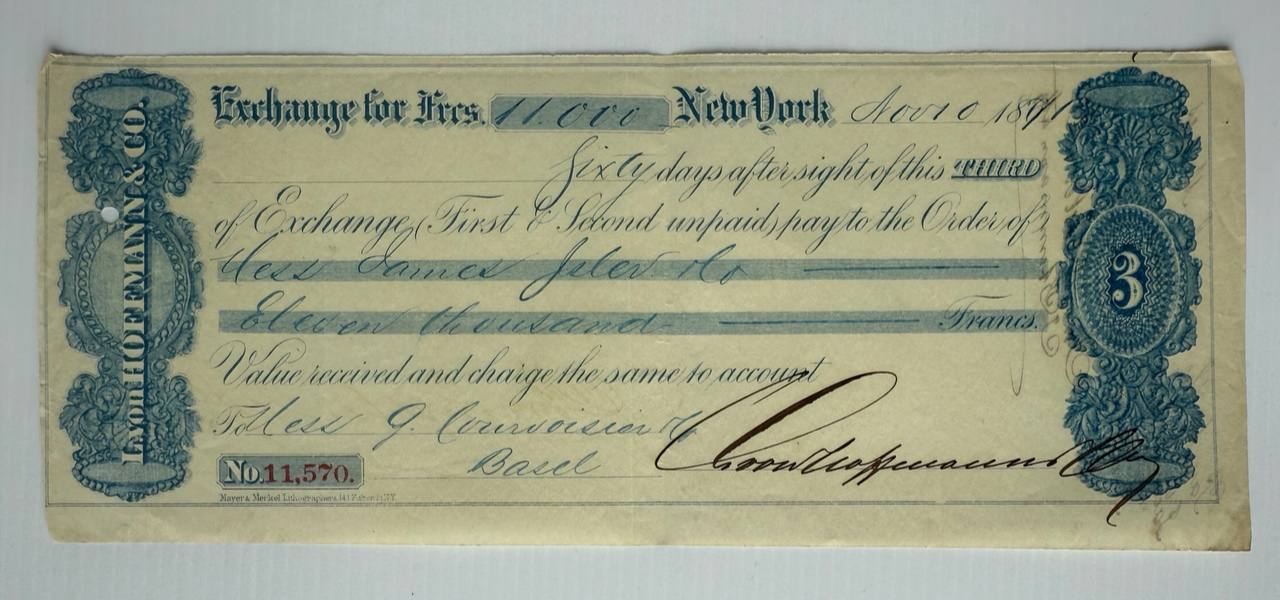 Lyon HOFFMANN & CO.
Exchange for Frcs. 11.000 New York Nov 10 1871
Sixty days after sight of this THIRD
of Exchange (First & Second unpaid) pay to the Order of
Mess James Isler & Co
Eleven thousand Francs.
Value received and charge the same to account
To Mess J. Courvoisier & Co
Basel
No. 11,570.
Mayer & Merkel Lithographers, N.Y.
3